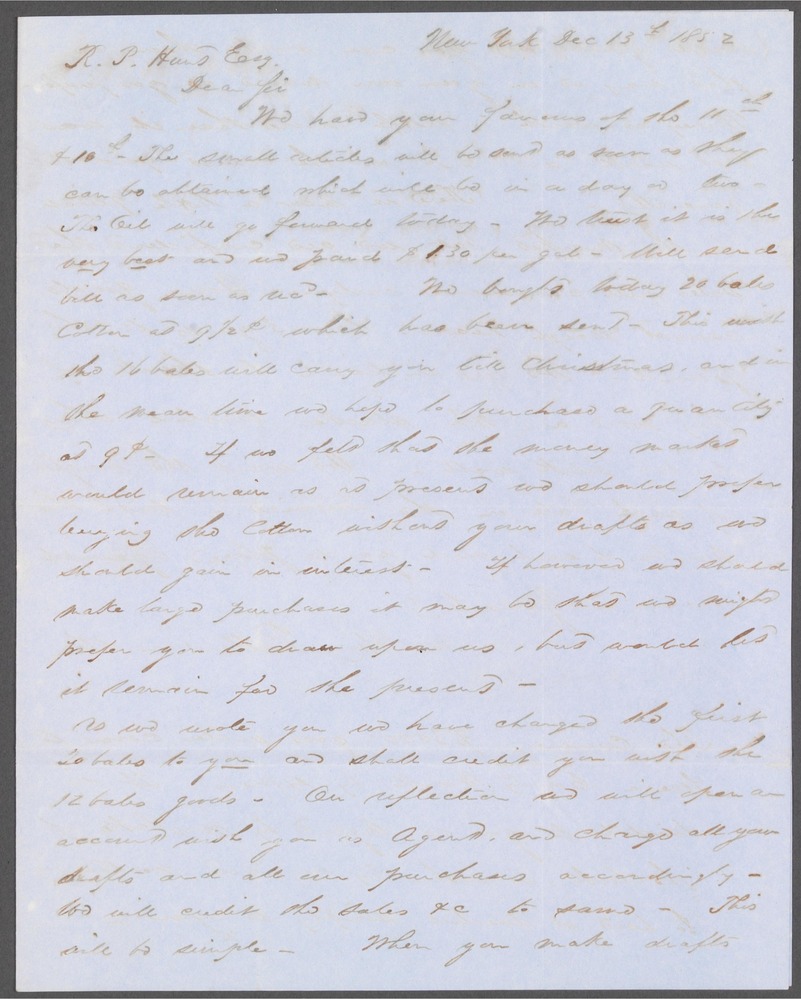 New York Dec 13th 1852
R. P. Hunt Esq.
Dear Sir
We have your favours of the 11th
& 10th - The small articles will be sent as soon as they
can be obtained which will be in a day or two -
The Oil will go forward today - We trust it is the
very best and we paid $1.30 per gal - Will send
bill as soon as recd - We bought today 20 bales
Cotton at 9 1/2 ¢ which has been sent - This with
the 16 bales will carry you till Christmas, and in
the mean time we hope to purchase a quantity
at 9¢ - If we felt that the money market
would remain as at present we should prefer
buying the Cotton without your drafts as we
should gain in interest - If however we should
make large purchases it may be that we might
prefer you to draw upon us, but would let
it remain for the present -
As we wrote you we have charged the first
20 bales to you and shall credit you with the
12 bales goods - On reflection we will open an
account with you as Agent, and charge all your
drafts and all our purchases accordingly -
We will credit the sales &c to same - This
will be simple - When you make drafts